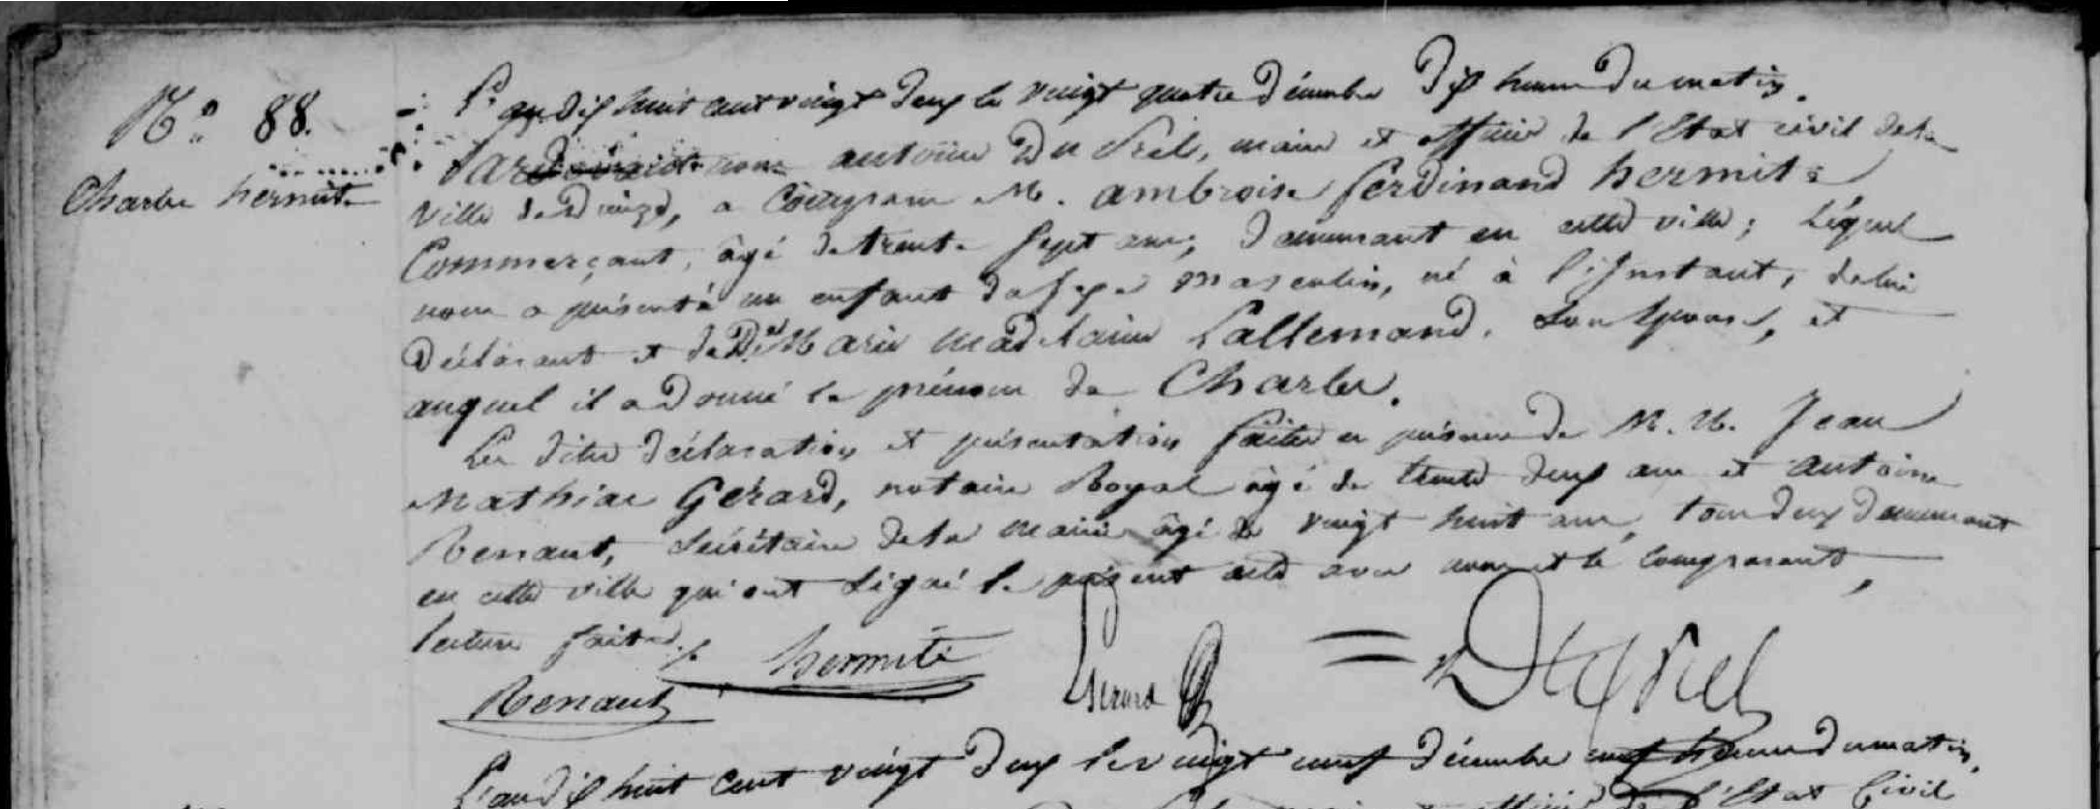 N.º 88.
Charles hermite
L'an dix huit cent vingt deux le vingt quatre Décembre Dix heures Du matin.
Par devant nous antoine Du Prel, maire et officier de l'Etat civil de la
ville de Dieuze, a Comparu M. ambroise ferdinand hermite
Commerçant, âgé de trente sept ans, Demeurant en cette ville; Lequel
nous a présenté un enfant du sexe masculin, né à l'instant, de lui
Déclarant et de De Marie Madelaine Lallemand, Son Epouse, et
auquel il a Donné le prénom de Charles.
Les dites déclaration et présentation faites en présence de M. M. Jean
Mathias Gérard, notaire Royal âgé de trente deux ans et antoine
Renaut, Sécrétaire de la mairie âgé de vingt huit ans, tous deux demeurant
en cette ville qui ont Signé le présent acte avec nous et le comparant,
lecture faite./.
hermite
Gérard
Renaut
L'an dix huit Cent vingt Deux le vingt neuf Décembre neuf heures du matin.
l'Etat Civil